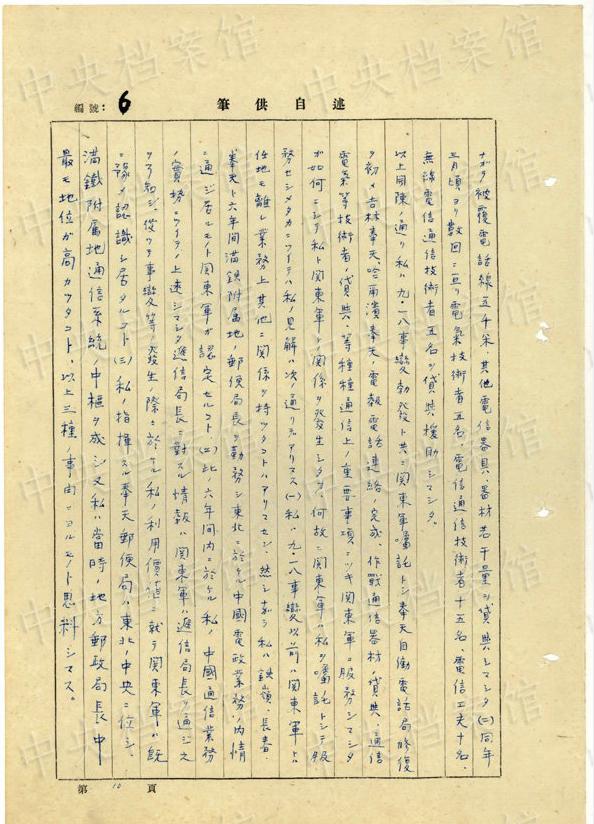 編號: 6
筆供自述
ガタ被覆電話線五千米、其他電信器具、器材若干量ヲ貸與シマシタ(二)同年
三月頃ヨリ數回ニ亘リ電氣技術者五名、電信通信技術者十五名、電信工夫十名、
無線電信通信技術者五名ヲ貸與援助シマシタ。
以上開陳ノ通リ私ハ九・一八事變勃發ト共ニ関東軍囑託トシ奉天自働電話局修復
ヲ初メ吉林奉天、哈爾濱奉天ノ電報電話連絡ノ完成、作戰通信器材ノ貸與、通信
電氣等技術者ノ貸與等種種通信上ノ重要事項ニツキ関東軍ニ服務シマシタ
ガ如何ニシテ私ト関東軍トノ関係ヲ發生シタカ、何故ニ関東軍ハ私ヲ囑託トシテ服
務セシメタカニツイテハ私ノ見解ハ次ノ通リデアリマス(一)私ハ九・一八事變以前ハ関東軍トハ
任地モ離レ業務上其他ニ関係ヲ持ツタコトハアリマセン、然シ乍ラ私ハ鉄嶺、長春、
奉天ト六年間満鉄附属地ノ郵便局長ヲ勤務シ東北ニ於ケル中國電政業務ノ内情
ニ通ジ居ルモノト関東軍ガ認定セルコト(二)此ノ六年間内ニ於ケル私ノ中國通信業務
ノ實勢ニツイテノ上遞シマシタ遞信局長ニ對スル情報ハ関東軍ハ遞信局長ヲ通ジ之
ヲ了知シ、從ツテ事變等ノ發生ノ際ニ於ケル私ノ利用價値ニ就テ関東軍ハ既
ニ豫メ認識シ居タルコト(三)私ノ指揮スル奉天郵便局ハ東北ノ中央ニ位シ、
満鐵附属地通信系統ノ中樞ヲ成シ又私ハ當時ノ地方郵政局長中
最モ地位ガ高カツタコト、以上三種ノ事由ニヨルモノト思料シマス。
第 10 頁
中央档案馆